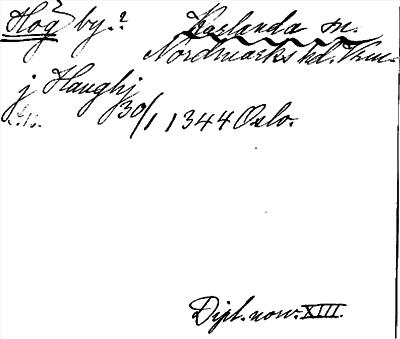 Hög by.? Karlanda sn.
Nordmarks hd. Vrm.
j Haughj
30/1 1344 Oslo.
Dipl. norv. XIII.